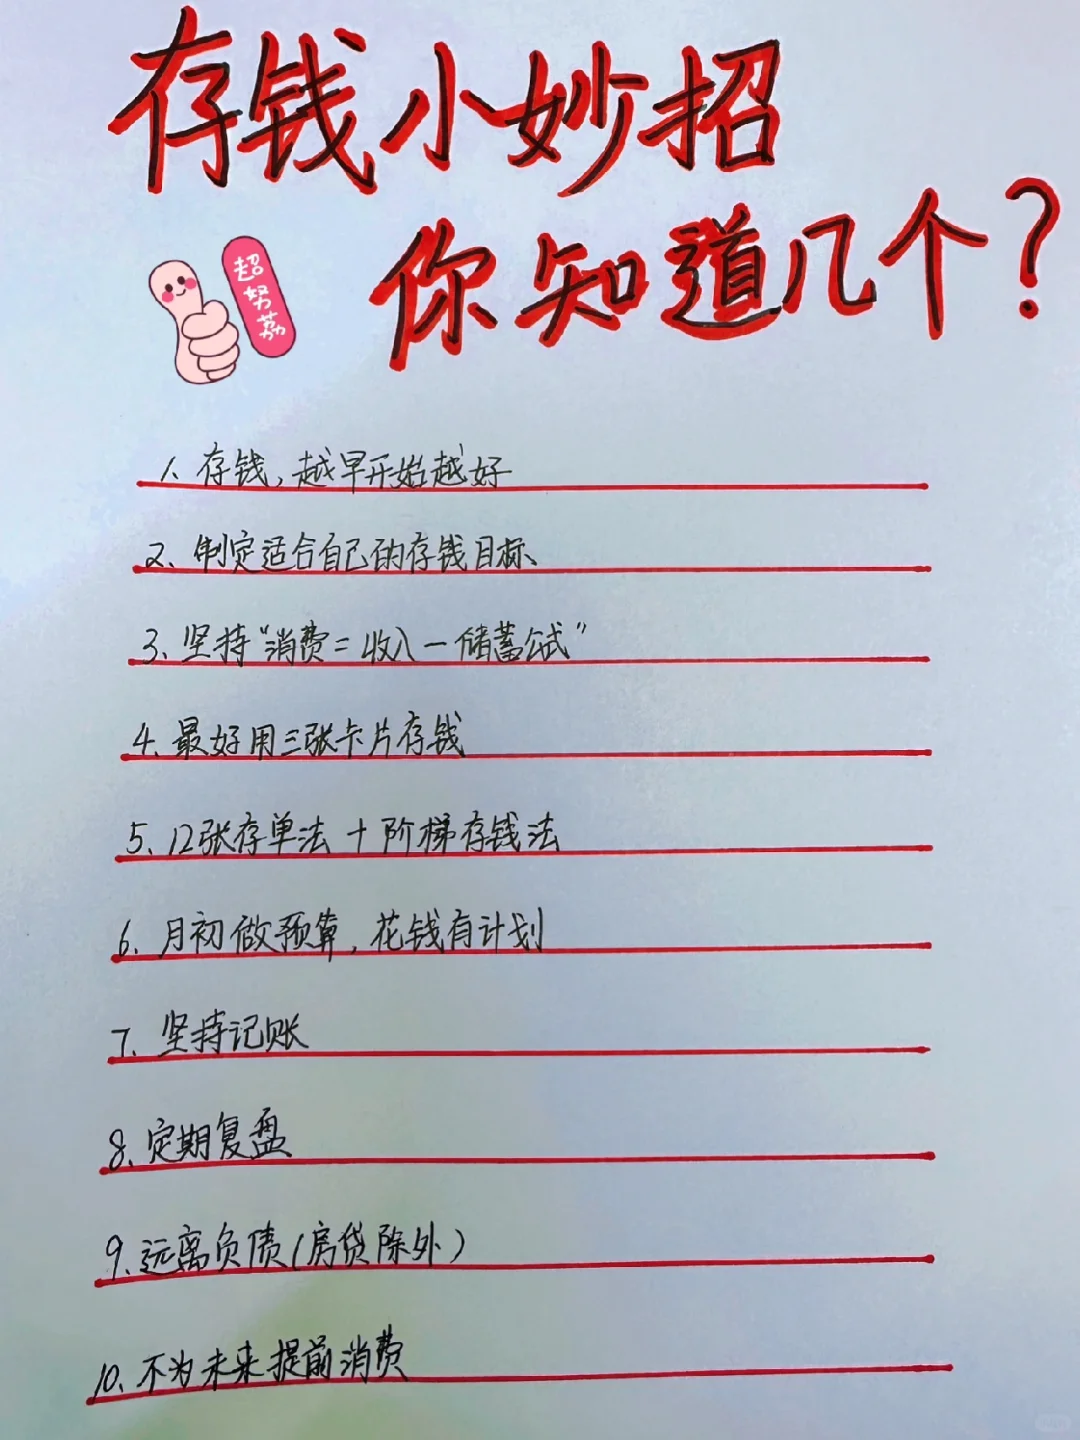 存钱小妙招
你知道几个?
超努荔
1、存钱,越早开始越好
2、制定适合自己的存钱目标、
3、坚持“消费=收入-储蓄公式”
4、最好用三张卡片存钱
5、12张存单法+阶梯存钱法
6、月初做预算,花钱有计划
7、坚持记账
8、定期复盘
9、远离负债(房贷除外)
10、不为未来提前消费